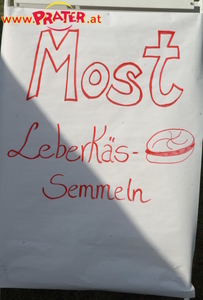 www.PRATER.at
Most
LeberKäs-
Semmeln